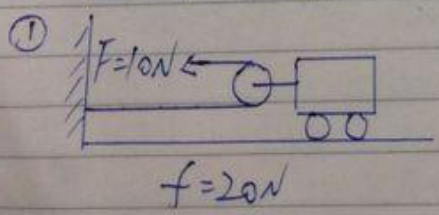 ①
F=10N
f=20N